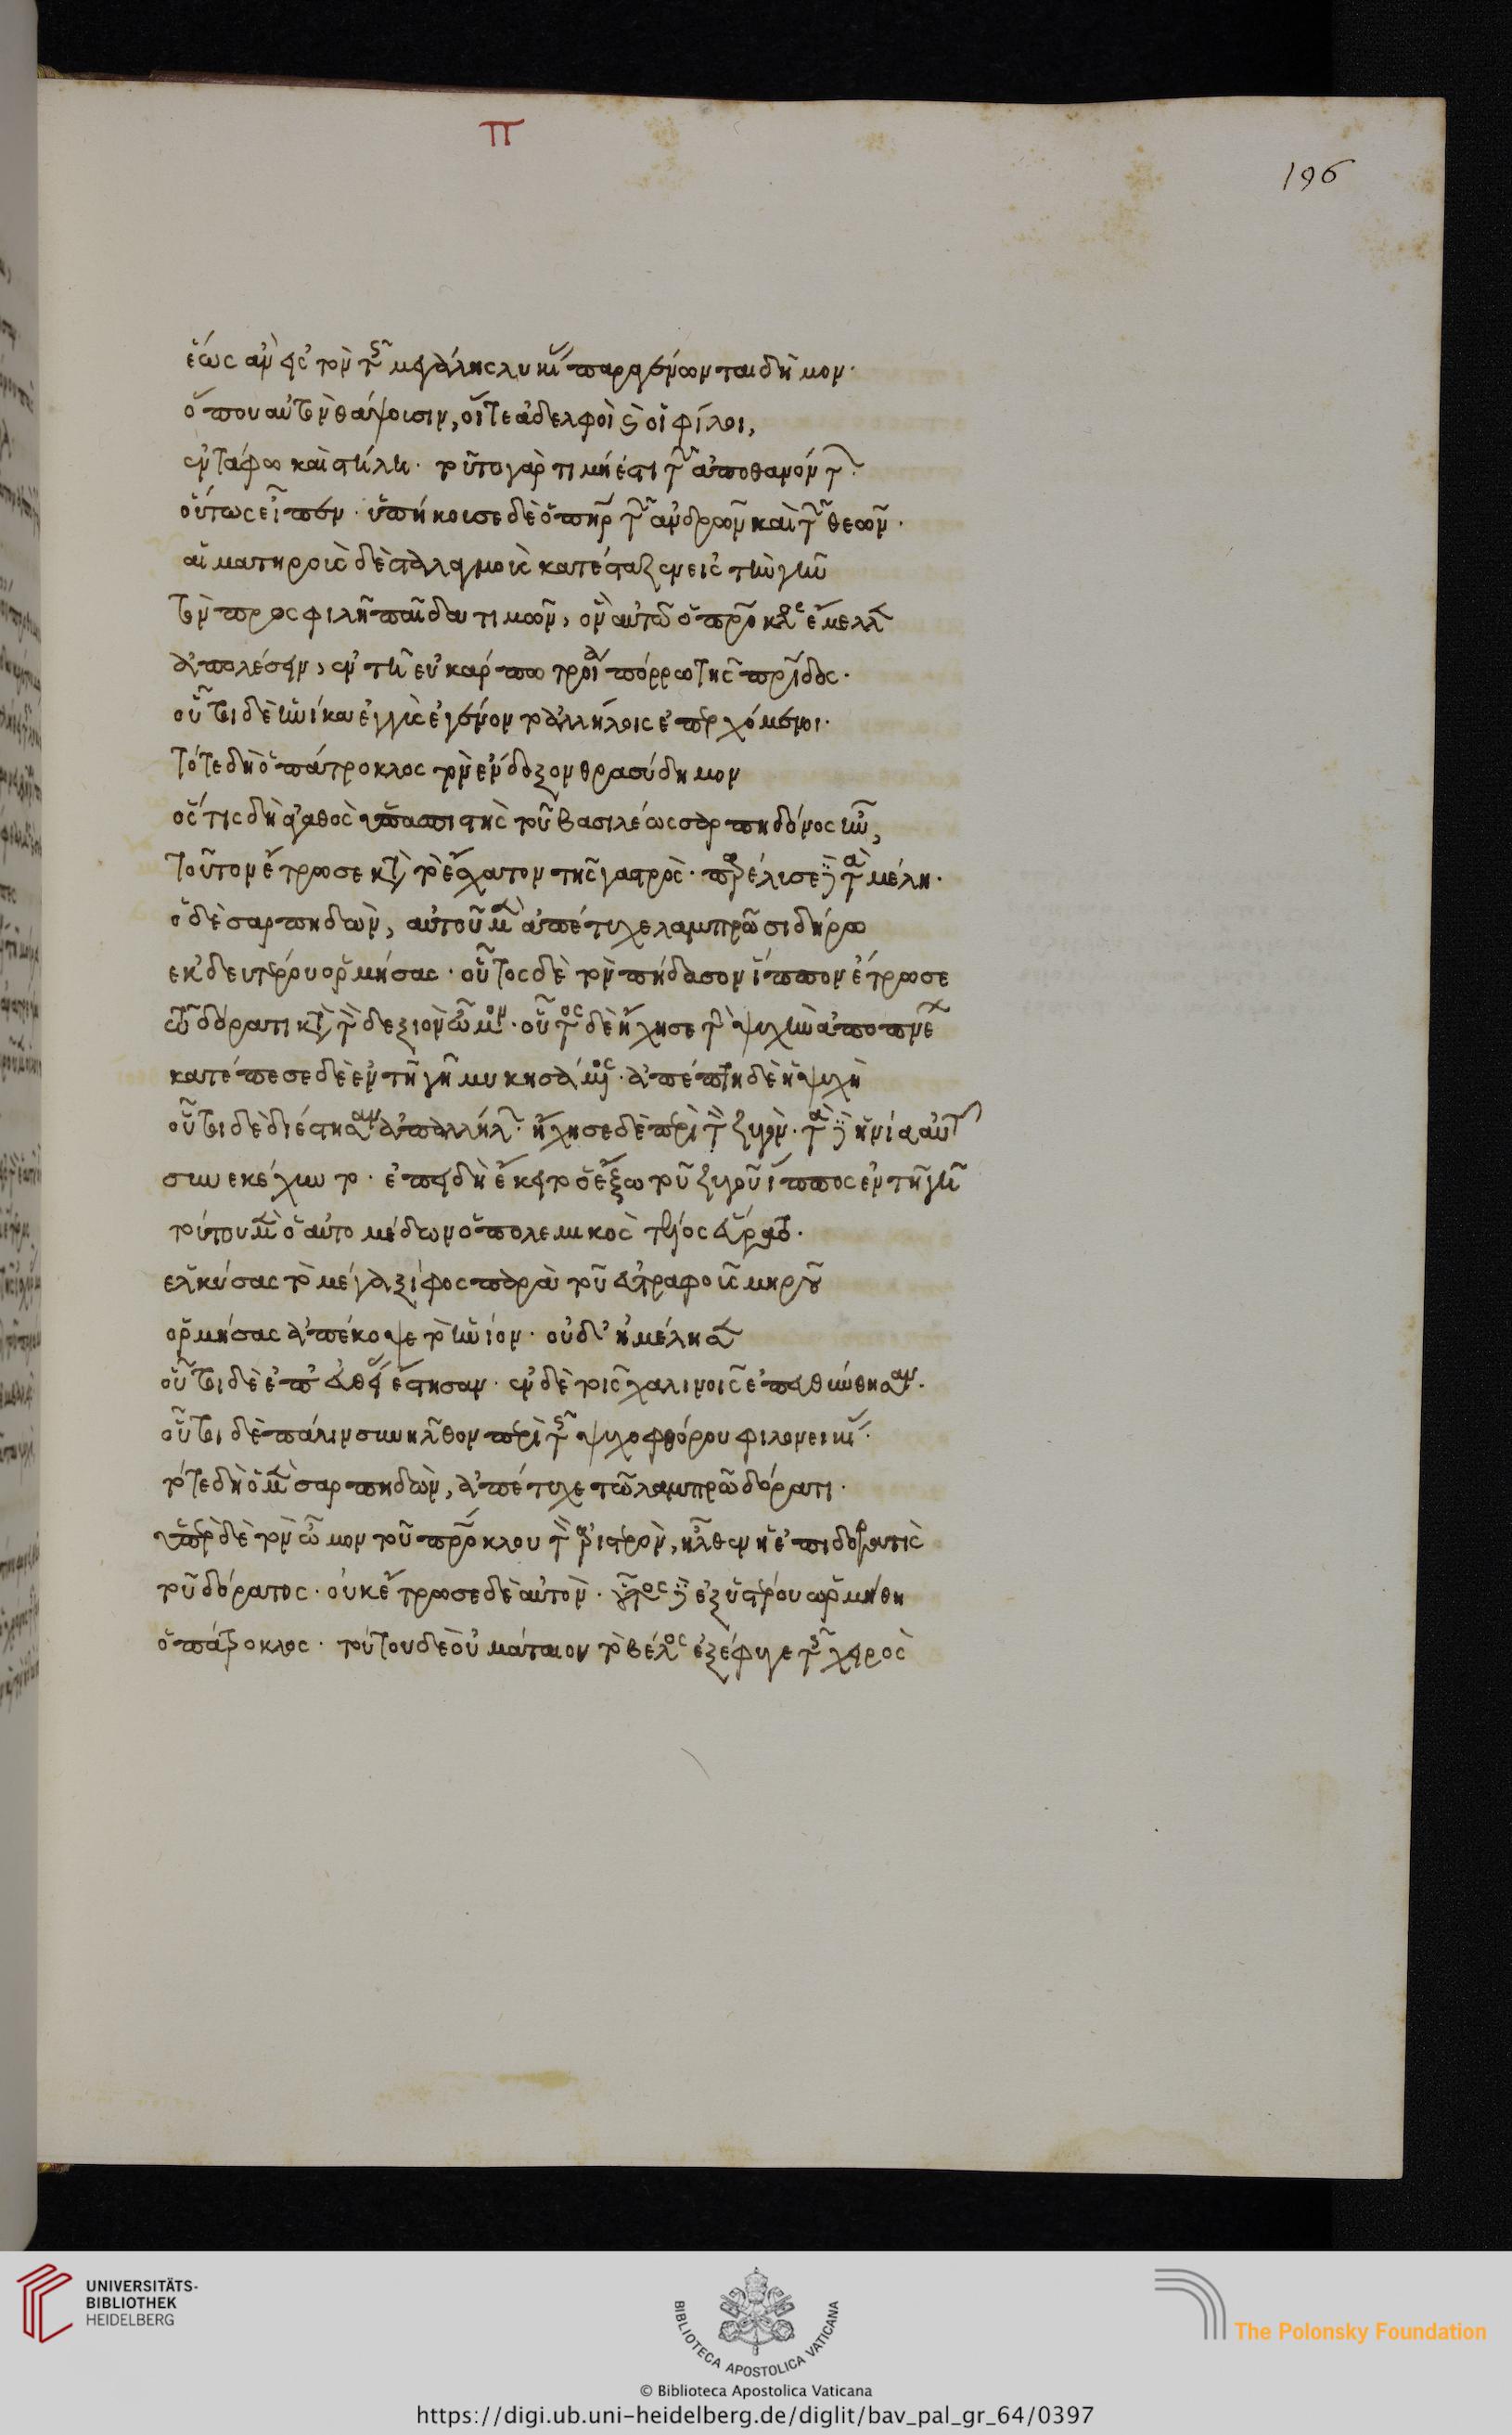 π
196
ἕως ἂν εἰς τὸν τῆς μεγάλης λυκίας παραγένωνται δῆμον·
ὅπου αὐτὸν θάψουσιν, οἵτε ἀδελφοὶ καὶ οἱ φίλοι,
ἐν τάφω καὶ στήλη· τοῦτο γάρ τιμή ἐστι τῶν ἀποθανόντων·
οὕτως εἶπεν· ὑπήκουσε δὲ ὁ πατὴρ τῶν ἀνδρῶν καὶ τῶν θεῶν·
αἱματηροὺς δὲ σταλαγμοὺς κατέσταξεν εἰς τὴν γῆν
τὸν προσφιλῆ παῖδα τιμῶν, ὃν αὐτῶ ὁ πάτροκλος ἔμελλεν
ἀπολέσειν, ἐν τῆ εὐκάρπω τροία πόρρω τῆς πατρίδος·
οὗτοι δὲ ἡνίκα ἐγγὺς ἐγένοντο ἀλλήλοις ἐπερχόμενοι·
τότε δὴ ὁ πάτροκλος τὸν ἔνδοξον θρασύδημον
ὅστις δὴ ἀγαθὸς ὑπασπιστὴς τοῦ βασιλέως σαρπηδόνος ἦν,
τοῦτον ἔτρωσε κατὰ τὸ ἔσχατον τῆς γαστρὸς· παρέλυσε δὲ τὰ μέλη·
ὁ δὲ σαρπηδὼν, αὐτοῦ μὲν ἀπέτυχε λαμπρῶ σιδήρω
ἐκ δευτέρου ὁρμήσας· οὗτος δὲ τὸν πήδασον ἵππον ἔτρωσε
τῶ δόρατι κατὰ τὸν δεξιὸν ὦμον· οὗτος δὲ ἤχησε τὴν ψυχὴν ἀποπνέων
κατέπεσε δὲ ἐν τῆ γῆ μυκησάμενος· ἀπέπτη δὲ ἡ ψυχὴ
οὗτοι δὲ διέστησαν ἀπαλλήλων· ἤχησε δὲ περὶ τὸν ζυγὸν· τὰ δὲ ἡνία αὐτῶν
συνεκέχυντο· ἐπειδὴ ἔκειτο ὁ ἔξω τοῦ ζυγοῦ ἵππος ἐν τῆ γῆ
τούτου μὲν ὁ αὐτομέδων ὁ πολεμικὸς τέλος εὕρατο·
ἑλκύσας τὸ μέγα ξίφος παρὰ τοῦ εὐτραφοῦς μηροῦ
ὁρμήσας ἀπέκοψε τὸ ἡνίον· οὐδ' ἠμέλησεν
οὗτοι δὲ ἐπ' εὐθείας ἔστησαν· ἐν δὲ τοῖς χαλινοῖς ἐπευθύνθησαν·
οὗτοι δὲ πάλιν συνῆλθον περὶ τῆς ψυχοφθόρου φιλονεικίας·
τότε δὴ ὁ μὲν σαρπηδὼν, ἀπέτυχε τῶ λαμπρῶ δόρατι·
ὑπὲρ δὲ τὸν ὦμον τοῦ πατρόκλου τὸν ἀριστερὸν, ἦλθεν ἡ ἐπιδορατὶς
τοῦ δόρατος· οὐκ ἔτρωσε δὲ αὐτὸν· οὗτος δὲ ἐξ ὑστέρου ὡρμήθη
ὁ πάτροκλος· τούτου δὲ οὐ μάταιον τὸ βέλος ἐξέφυγε τῆς χειρὸς
UNIVERSITÄTS-
BIBLIOTHEK
HEIDELBERG
BIBLIOTECA APOSTOLICA VATICANA
The Polonsky Foundation
© Biblioteca Apostolica Vaticana
https://digi.ub.uni-heidelberg.de/diglit/bav_pal_gr_64/0397